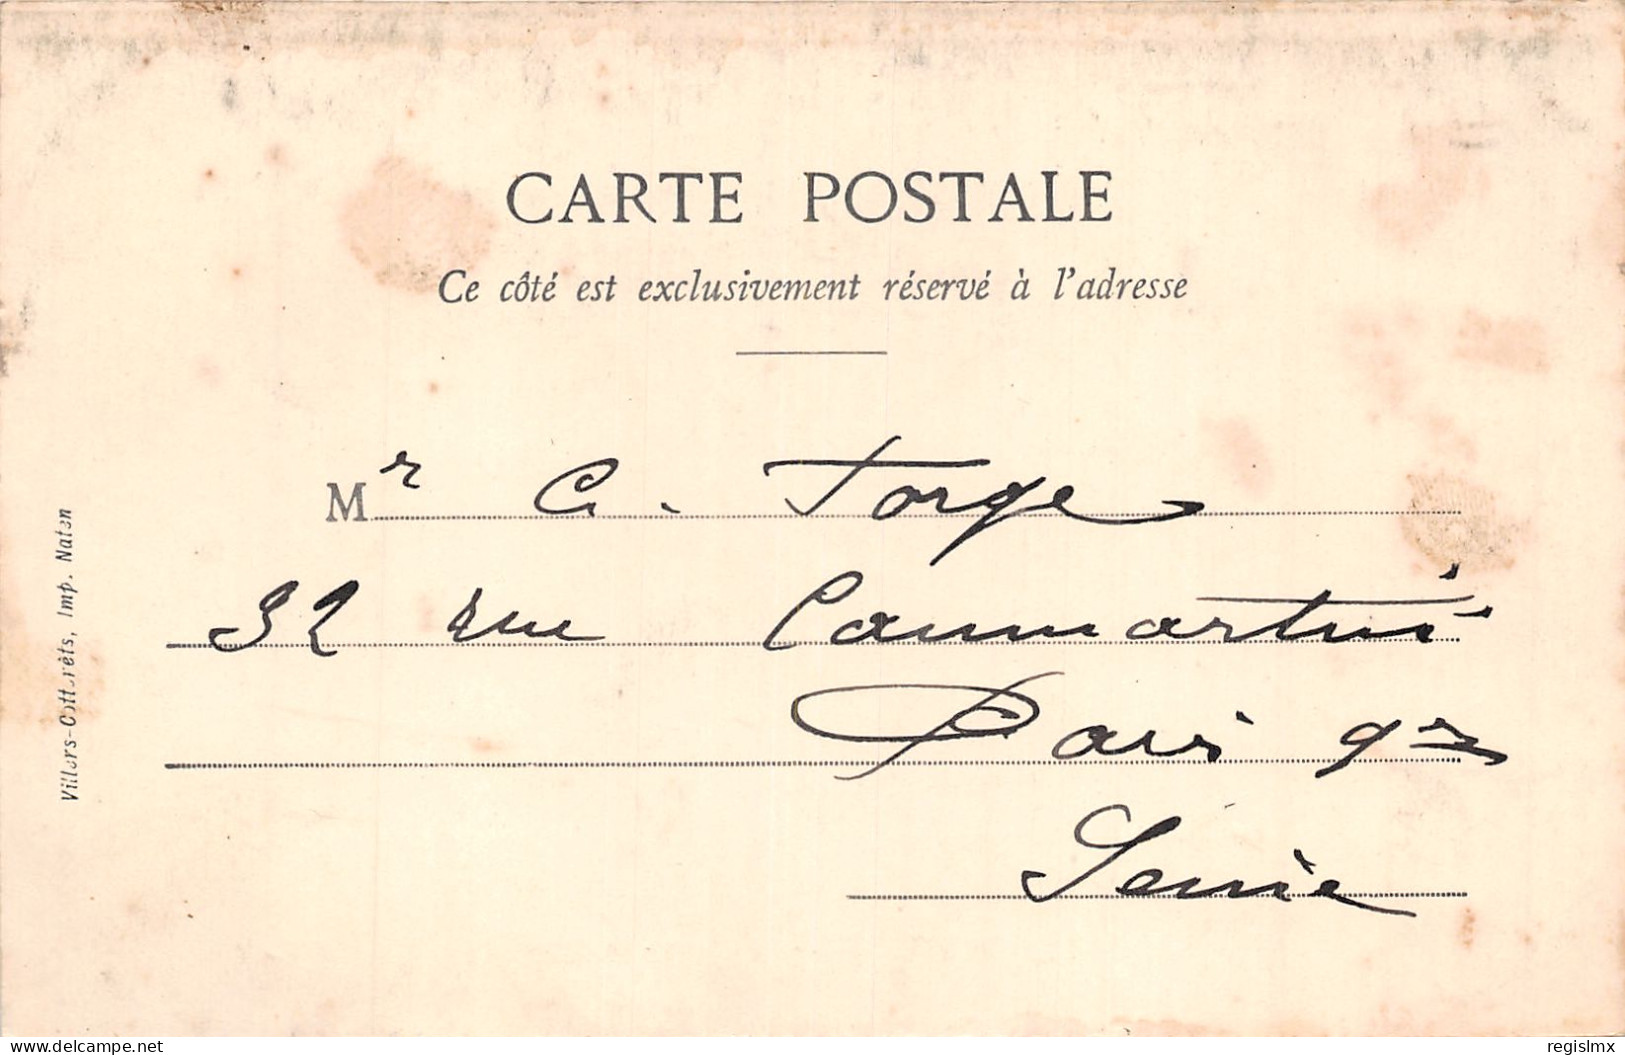 CARTE POSTALE
Ce côté est exclusivement réservé à l'adresse
Mr C. Forge
32 rue Caumartin
Paris 9me
Seine
Villers-Cotterêts, Imp. Natan
delcampe.net
regislmx